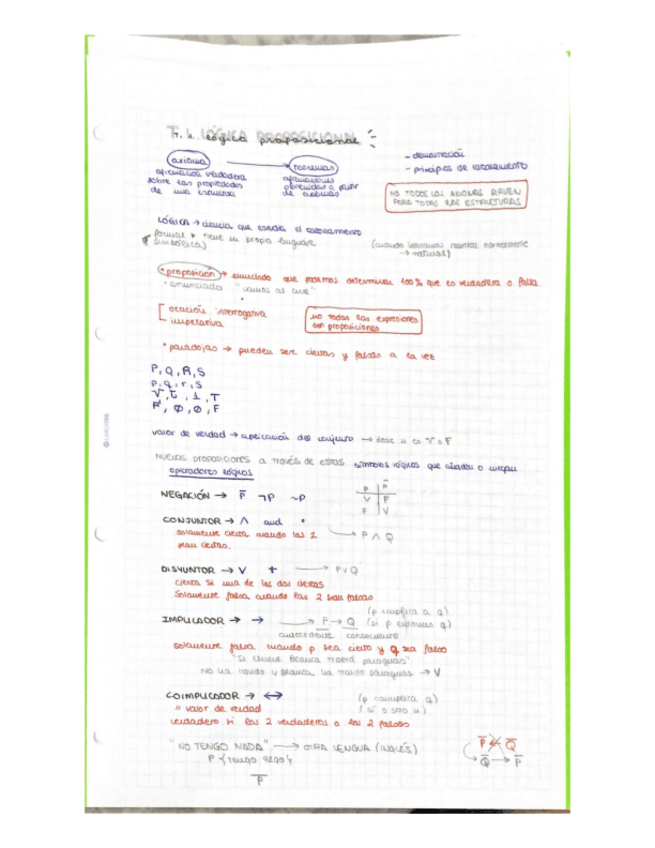 T.1. LÓGICA PROPOSICIONAL
lógica proposicional
axioma → teoremas
- demostración
- principios de razonamiento
afirmación verdadera
sobre las propiedades
de una estructura
afirmaciones
obtenidas a partir
de axiomas
NO TODOS LOS AXIOMAS SIRVEN
PARA TODAS LAS ESTRUCTURAS
LÓGICA → ciencia que estudia el razonamiento
formal → tiene su propio lenguaje
(simbólica)
(cuando hablamos normalmente
→ natural)
• proposición → enunciado que podemos determinar 100% que es verdadera o falsa.
• enunciado "vamos al cine"
oración interrogativa
imperativa
no todas las expresiones
son proposiciones
• paradojas → pueden ser ciertas y falsas a la vez
P, Q, R, S
p, q, r, s
V, 1, T
F
valor de verdad → aplicación del conjunto → decir si es V o F
NUEVAS PROPOSICIONES a través de estas símbolos lógicos que añaden o
operadores lógicos
NEGACIÓN → P̅ ¬P ~P
P P̅
V F
F V
CONJUNTOR → ∧ and •
→ P ∧ Q
solamente cierta cuando las 2
sean ciertas.
DISYUNTOR → V + → P v Q
cierta si una de las dos ciertas
Solamente falsa cuando las 2 sean falsas
IMPLICADOR → → → P → Q
(p implica a q)
(si p entonces q)
antecedente consecuente
solamente falsa cuando p sea cierto y Q sea falso
"Si llueve Blanca traerá paraguas"
No ha llovido y Blanca ha traído paraguas → V
COIMPLICADOR → ↔
(p coimplica q)
(si o solo si)
// valor de verdad
verdadero si los 2 verdaderos o los 2 falsos
"NO TENGO NADA" → OTRA LENGUA (INGLÉS)
P {tengo algo}
P̅
P̅ ← Q̅
Q̅ → P̅